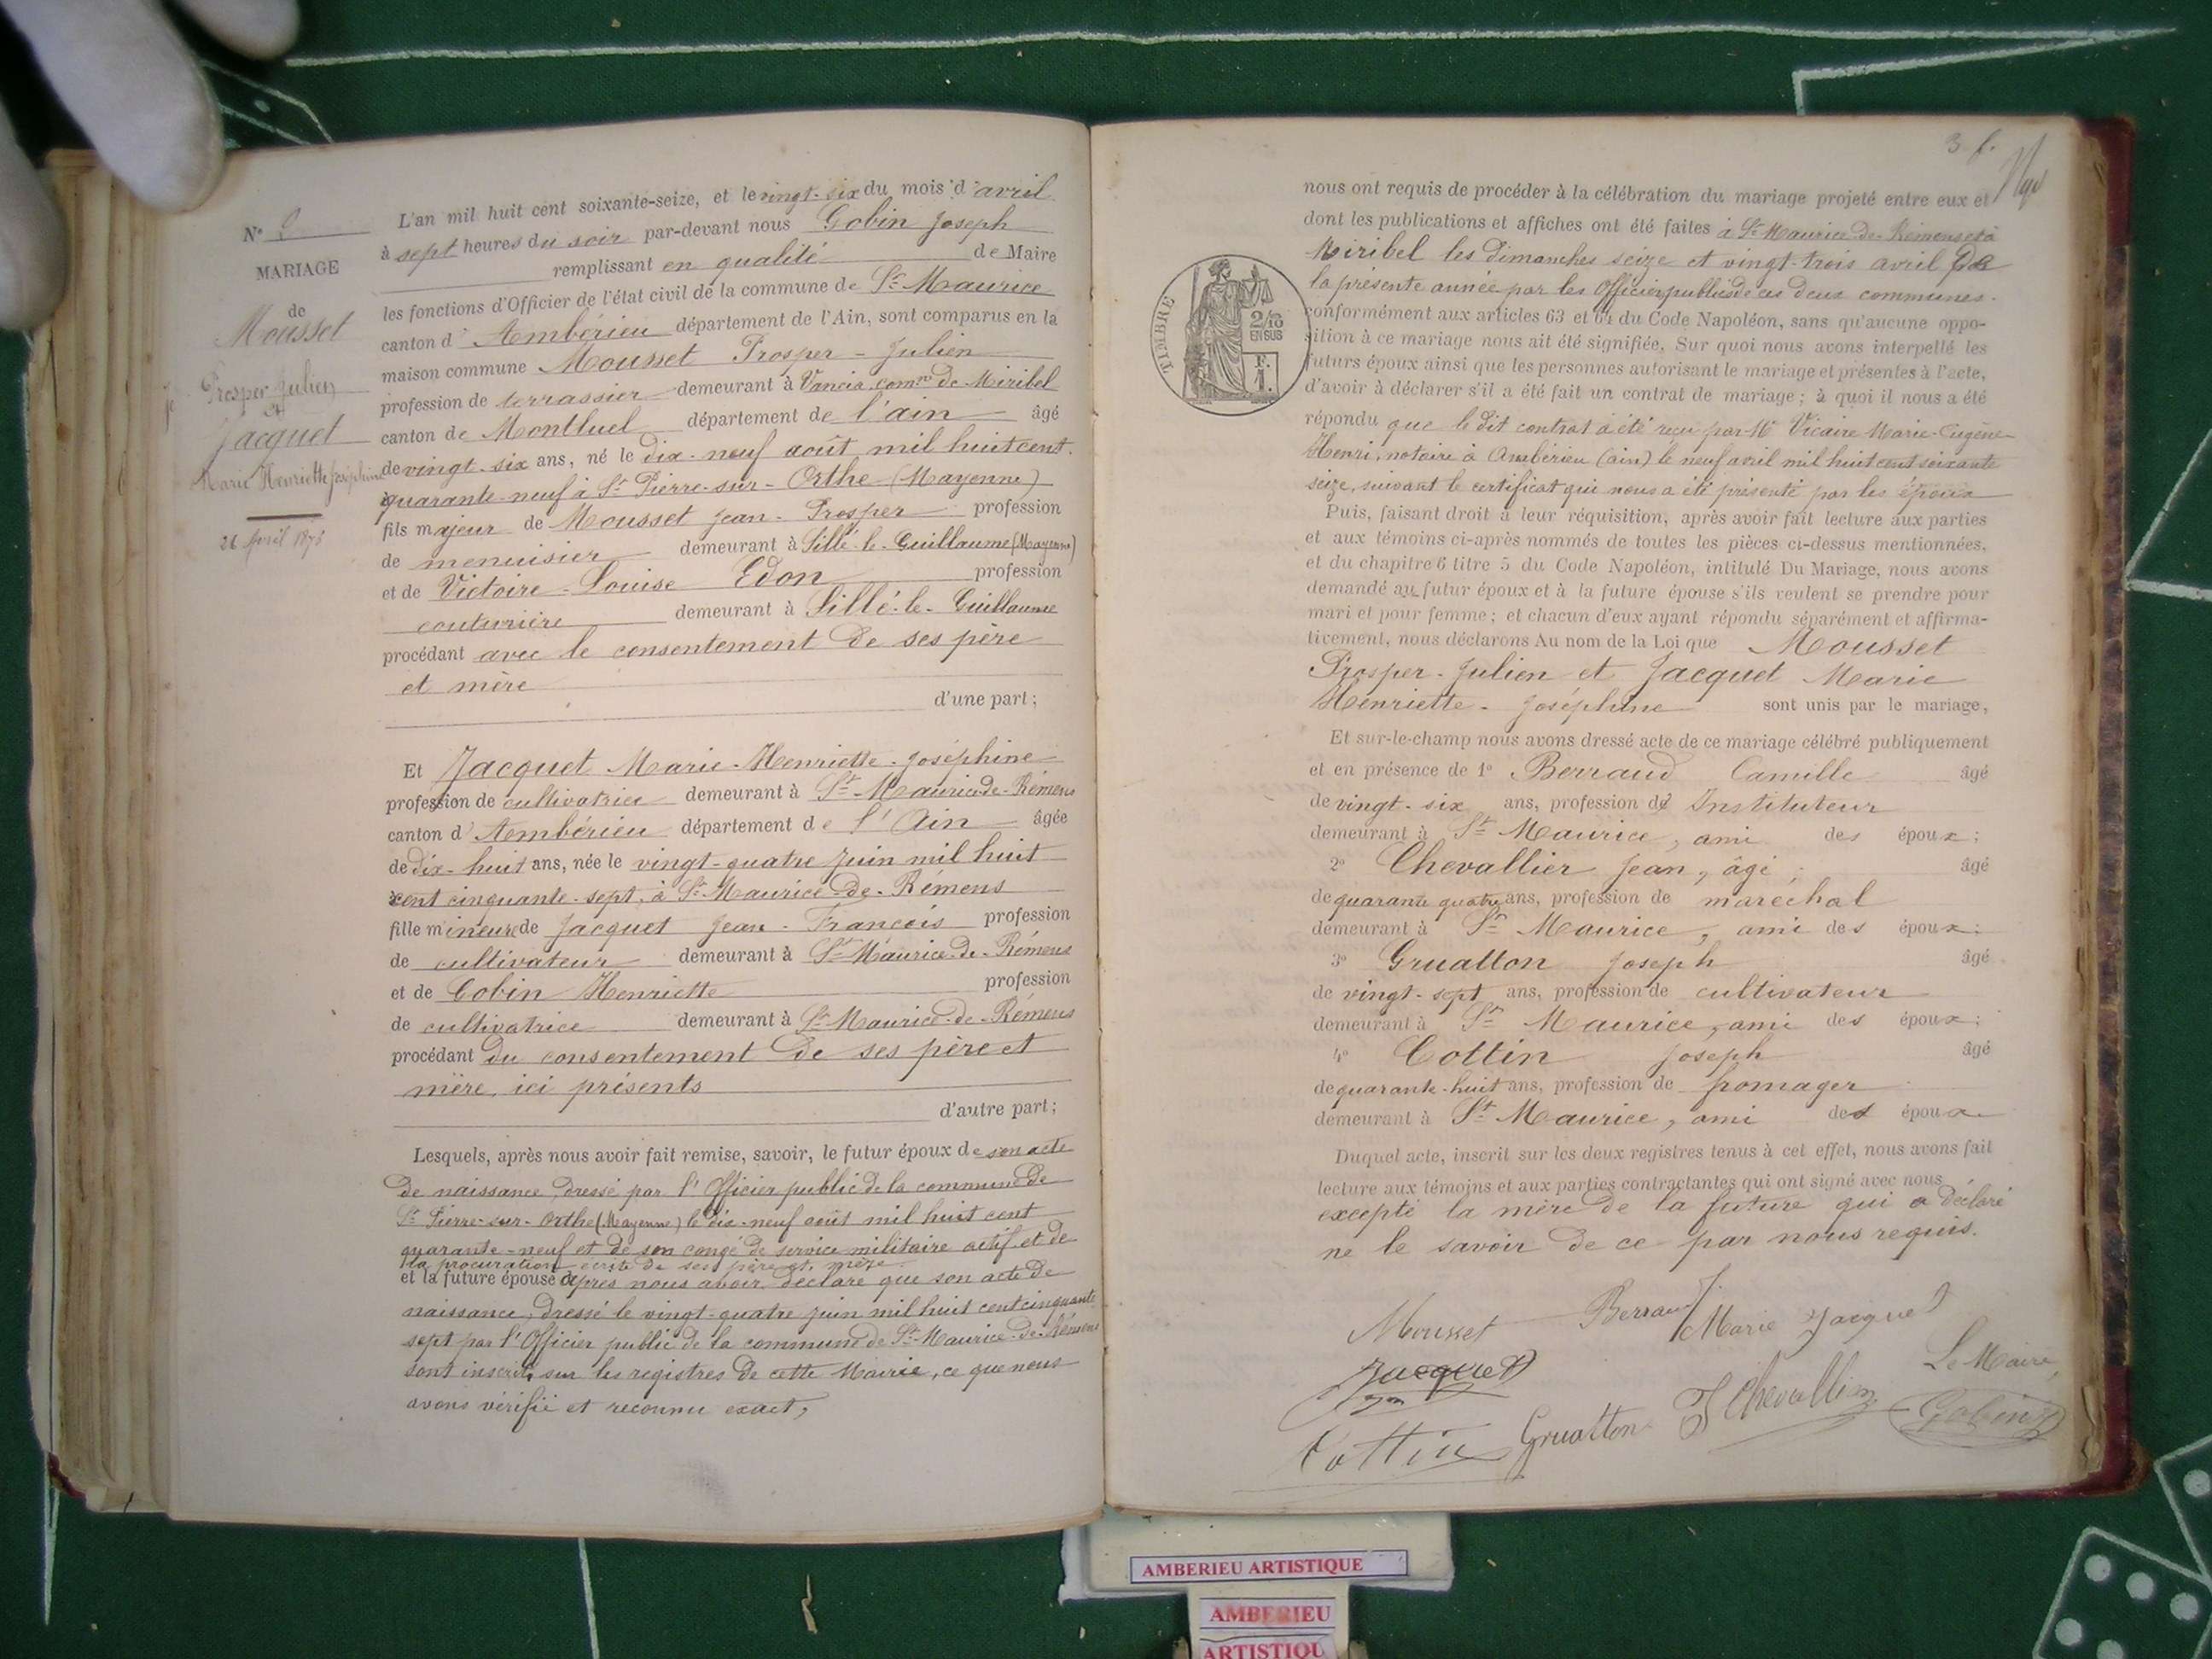 N° 2
MARIAGE
de
Mousset
Prosper Julien
et
Jacquet
Marie Henriette Joséphine
26 Avril 1876
L'an mil huit cent soixante-seize, et le vingt-six du mois d'avril
à sept heures du soir par-devant nous Gobin Joseph
remplissant en qualité de Maire
les fonctions d'Officier de l'état civil de la commune de St Maurice
canton d'Ambérieu département de l'Ain, sont comparus en la
maison commune Mousset Prosper-Julien
profession de terrassier demeurant à Vancia comne de Miribel
canton de Montluel département de l'ain âgé
de vingt-six ans, né le dix-neuf août mil huit cent
quarante-neuf à St Pierre-sur-Orthe (Mayenne)
fils majeur de Mousset Jean-Prosper profession
de menuisier demeurant à Sillé-le-Guillaume (Mayenne)
et de Victoire-Louise Edon profession
couturière demeurant à Sillé-le-Guillaume
procédant avec le consentement de ses père
et mère
d'une part;
Et Jacquet Marie-Henriette-Joséphine
profession de cultivatrice demeurant à St-Maurice-de-Rémens
canton d'Ambérieu département de l'Ain âgée
de dix-huit ans, née le vingt-quatre juin mil huit
cent cinquante-sept, à St-Maurice-de-Rémens
fille mineure de Jacquet Jean-François profession
de cultivateur demeurant à St-Maurice-de-Rémens
et de Gobin Henriette profession
de cultivatrice demeurant à St-Maurice-de-Rémens
procédant du consentement de ses père et
mère, ici présents
d'autre part;
Lesquels, après nous avoir fait remise, savoir, le futur époux de son acte
de naissance dressé par l'Officier public de la commune de
St Pierre-sur-Orthe (Mayenne) le dix-neuf août mil huit cent
quarante-neuf et de son congé de service militaire actif et de
la procuration écrite de ses père et mère
et la future épouse après nous avoir déclaré que son acte de
naissance, dressé le vingt-quatre juin mil huit cent cinquante
sept par l'Officier public de la commune de St-Maurice-de-Rémens
sont inscrits sur les registres de cette Mairie, ce que nous
avons vérifié et reconnu exact,
3 f.
nous ont requis de procéder à la célébration du mariage projeté entre eux et
dont les publications et affiches ont été faites à St-Maurice-de-Rémens et à
Miribel les dimanches seize et vingt-trois avril de
la présente année par les Officiers publics de ces deux communes.
conformément aux articles 63 et 64 du Code Napoléon, sans qu'aucune oppo-
sition à ce mariage nous ait été signifiée, Sur quoi nous avons interpellé les
futurs époux ainsi que les personnes autorisant le mariage et présentes à l'acte,
d'avoir à déclarer s'il a été fait un contrat de mariage; à quoi il nous a été
répondu que le dit contrat a été reçu par Me Vicaire Marie-Eugène-
Henri, notaire à Ambérieu (ain) le neuf avril mil huit cent soixante
seize, suivant le certificat qui nous a été présenté par les époux
Puis, faisant droit à leur réquisition, après avoir fait lecture aux parties
et aux témoins ci-après nommés de toutes les pièces ci-dessus mentionnées,
et du chapitre 6 titre 5 du Code Napoléon, intitulé Du Mariage, nous avons
demandé au futur époux et à la future épouse s'ils veulent se prendre pour
mari et pour femme; et chacun d'eux ayant répondu séparément et affirma-
tivement, nous déclarons Au nom de la Loi que Mousset
Prosper-Julien et Jacquet Marie
Henriette-Joséphine sont unis par le mariage,
Et sur-le-champ nous avons dressé acte de ce mariage célébré publiquement
et en présence de 1° Berraud Camille âgé
de vingt-six ans, profession de Instituteur
demeurant à St Maurice, ami des époux;
2° Chevallier Jean, âgé; âgé
de quarante quatre ans, profession de maréchal
demeurant à St Maurice, ami des époux;
3° Gruatton Joseph âgé
de vingt-sept ans, profession de cultivateur
demeurant à St Maurice, ami des époux;
4° Cottin Joseph âgé
de quarante-huit ans, profession de fromager
demeurant à St Maurice, ami des époux
Duquel acte, inscrit sur les deux registres tenus à cet effet, nous avons fait
lecture aux témoins et aux parties contractantes qui ont signé avec nous
excepté la mère de la future qui a déclaré
ne le savoir de ce par nous requis.
Mousset Berraud Marie Jacquet
Jacquet
Le Maire,
Cottin Gruatton J Chevallier Gobin
TIMBRE
2/10
EN SUS
F.
1.
AMBERIEU ARTISTIQUE
AMBERIEU
ARTISTIQU